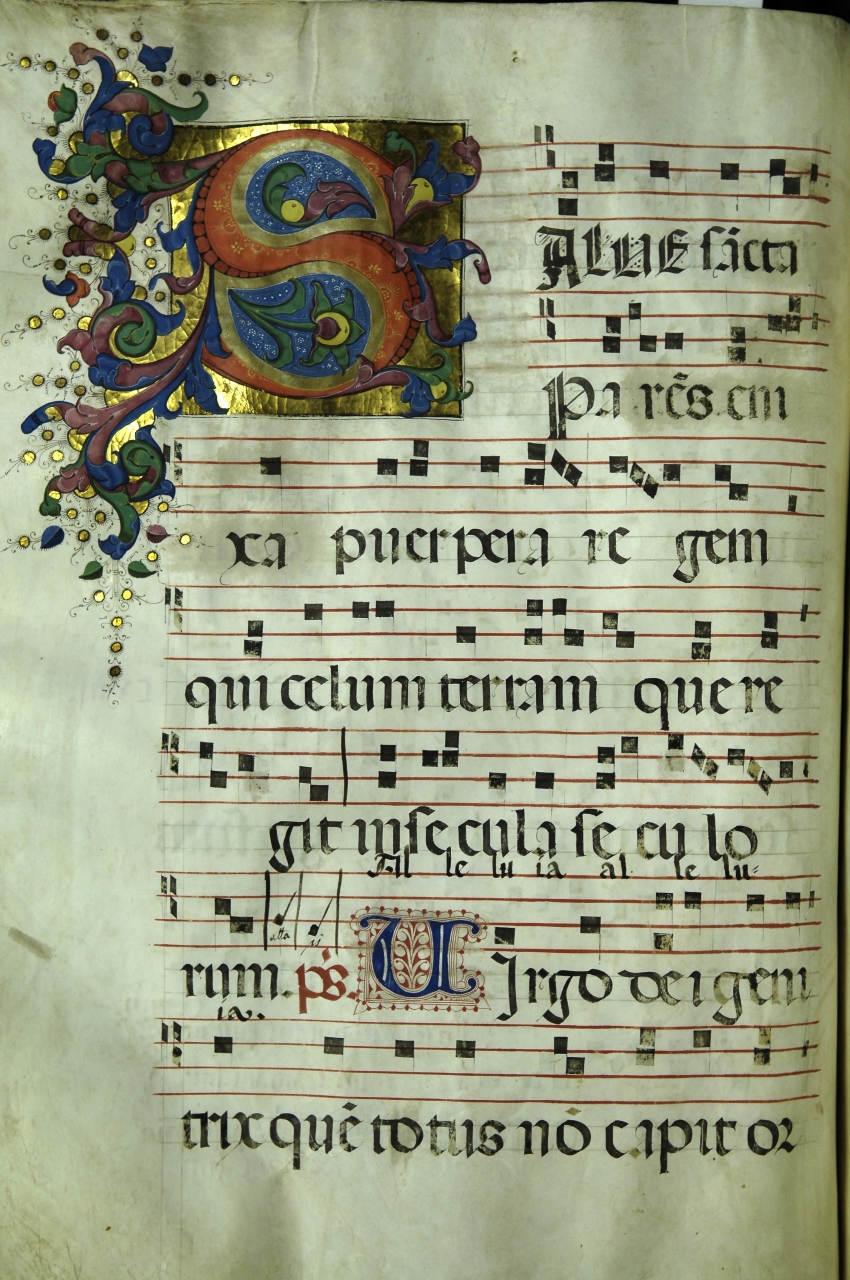 SALUE sācta
Pa rēs eni
xa puerpera re gem
qui celum terram que re
git in secula se cu lo
Al le lu ia al le lu-
rum. ps. UIrgo dei geni
ia.
trix quē totus nō capit or